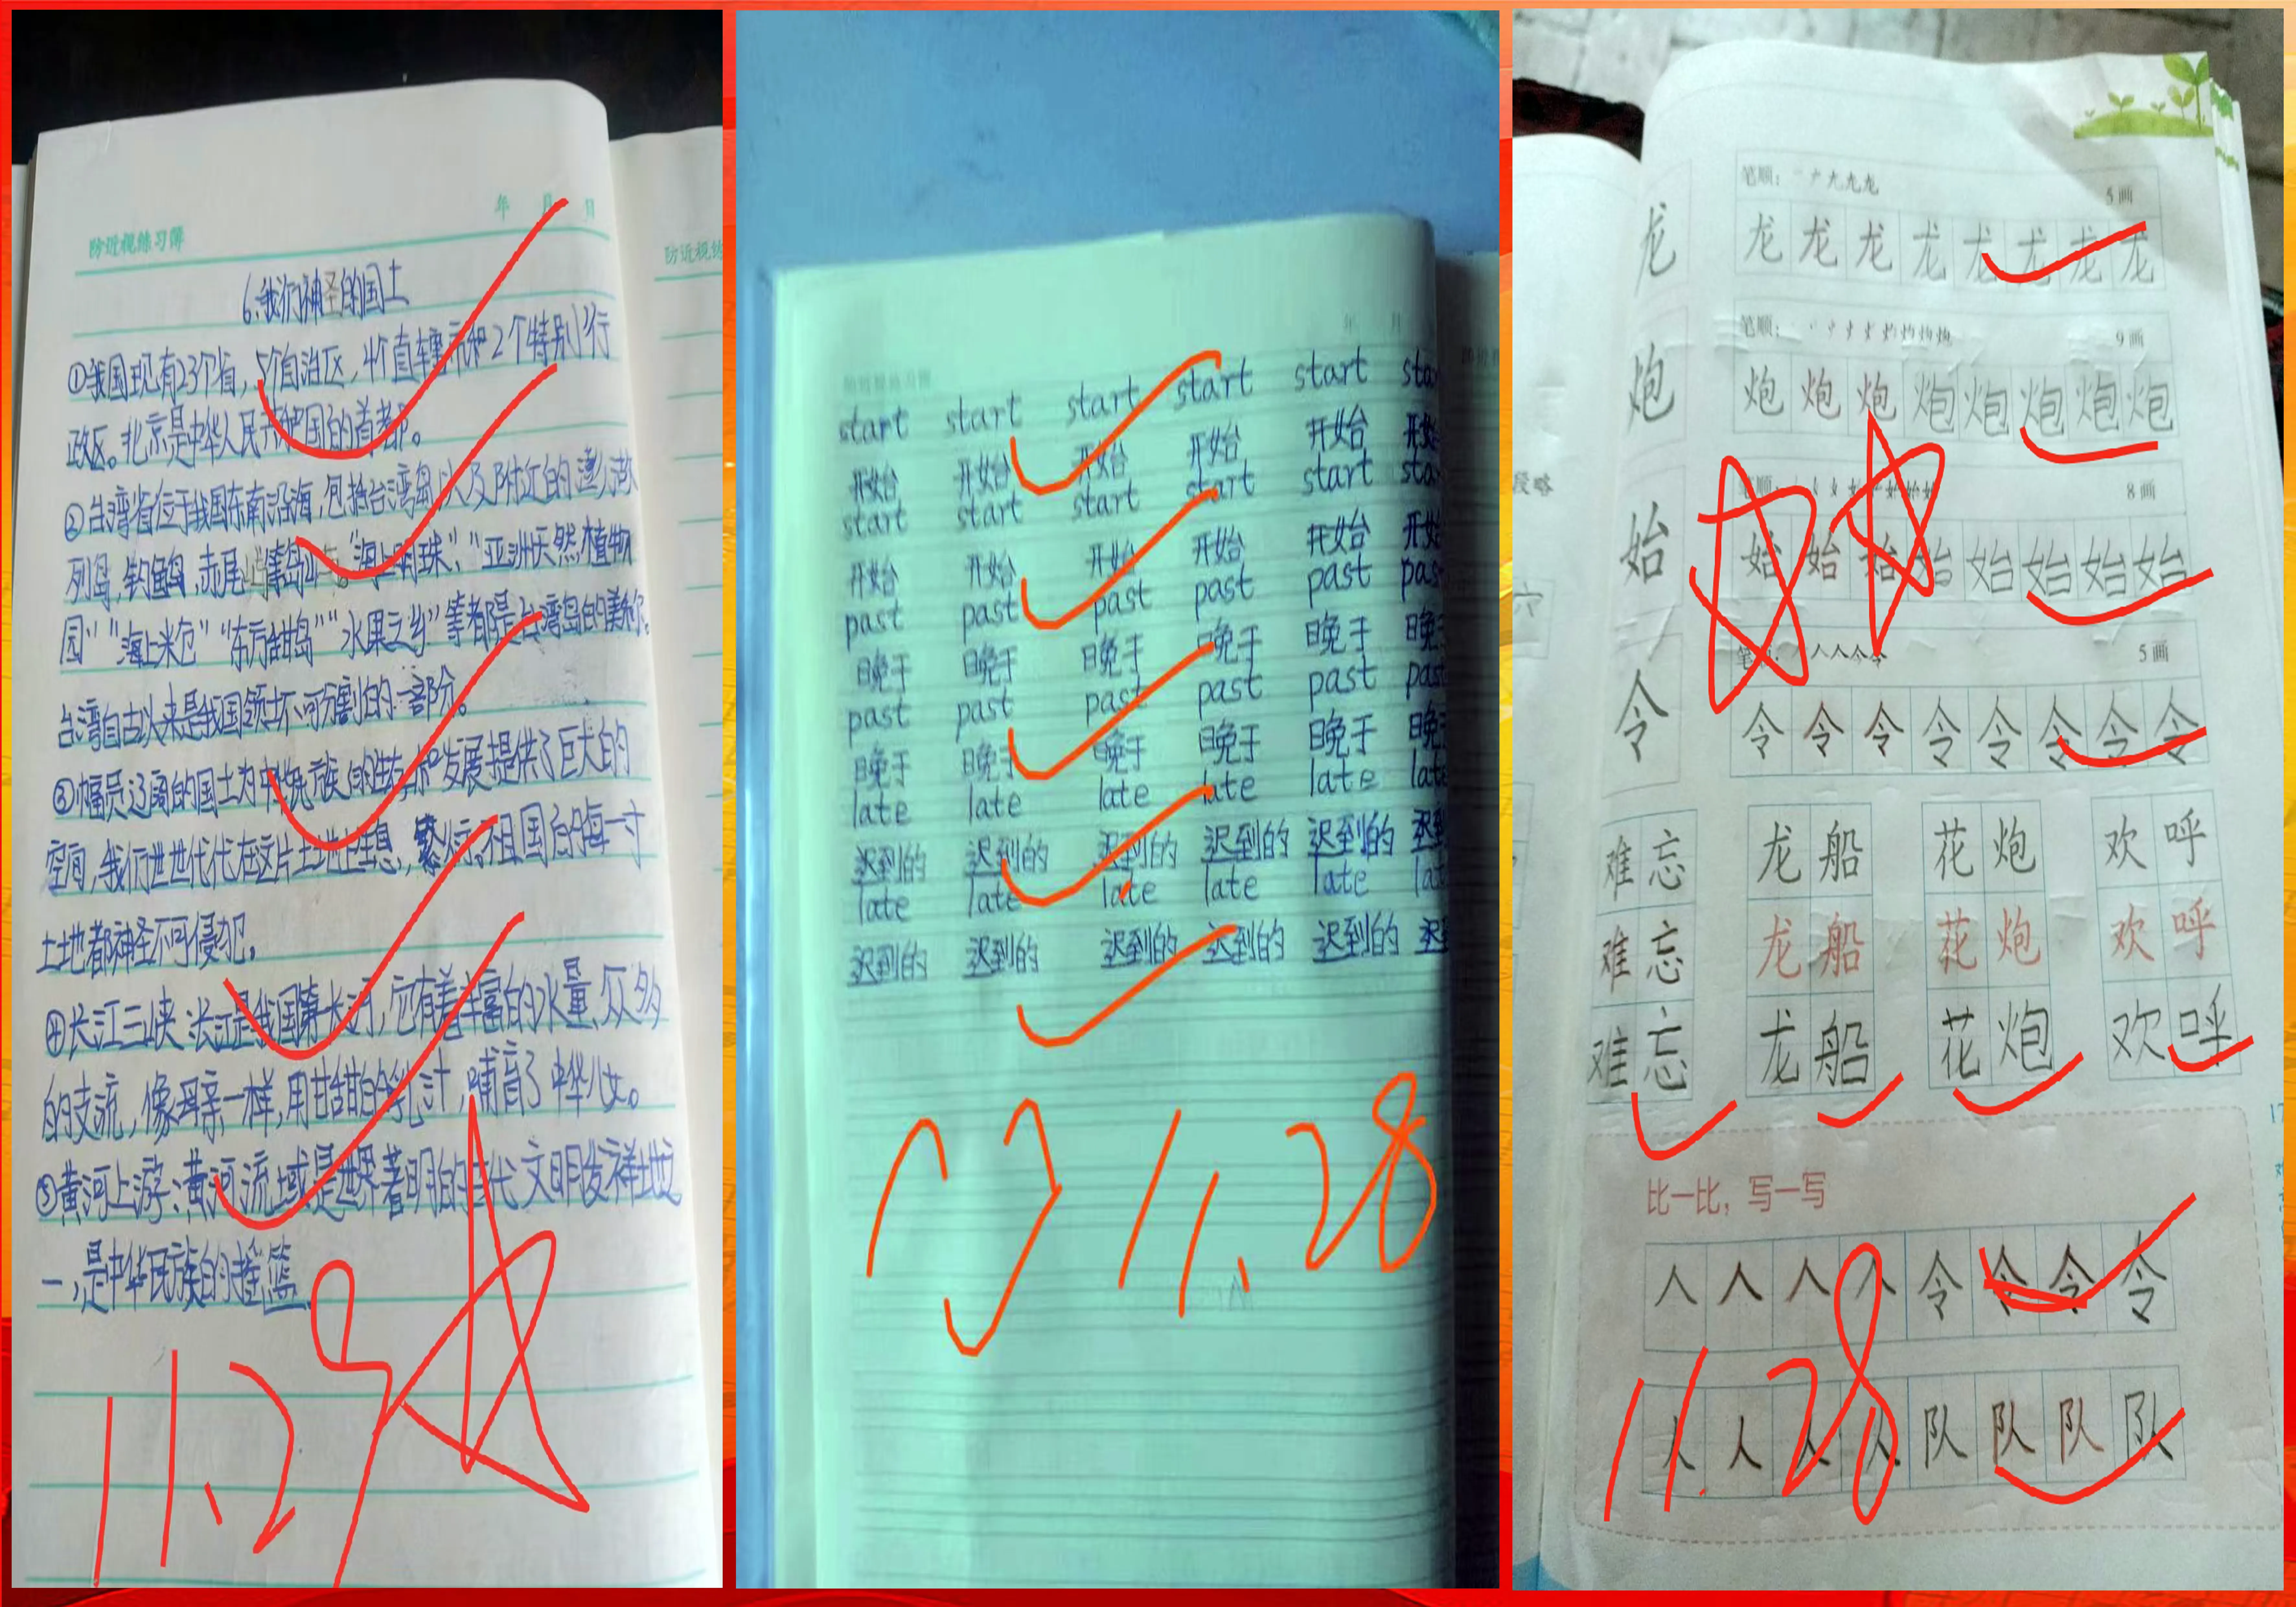 年 月 日
防近视练习簿
6.我们神圣的国土
①我国现有23个省,5个自治区,4个直辖市和2个特别行
政区。北京是中华人民共和国的首都。
②台湾省位于我国东南沿海,包括台湾岛以及附近的澎湖
列岛,钓鱼岛,赤尾屿等岛屿。“海上明珠”,“亚洲天然植物
园”“海上米仓”“东方甜岛”“水果之乡”等都是台湾岛的美称。
台湾自古以来是我国领土不可分割的一部分。
③幅员辽阔的国土为中华民族的生存和发展提供了巨大的
空间,我们世世代代在这片土地上生息,繁衍,祖国的每一寸
土地都神圣不可侵犯。
④长江三峡:长江是我国第一长河,它有着丰富的水量,众多
的支流,像母亲一样,用甘甜的乳汁,哺育了中华儿女。
⑤黄河上游:黄河流域是世界著明的古代文明发祥地之
一,是中华民族的摇篮
11.29
防近视练
年 月
start start start start start sta
开始 开始 开始 开始 开始 开始
start start start start start sta
开始 开始 开始 开始 开始 开始
past past past past past pas
晚于 晚于 晚于 晚于 晚于 晚
past past past past past pas
晚于 晚于 晚于 晚于 晚于 晚
late late late late late lat
迟到的 迟到的 迟到的 迟到的 迟到的 迟到
late late late late late lat
迟到的 迟到的 迟到的 迟到的 迟到的 迟
11.28
笔顺: 5画
龙 龙 龙 龙 龙 龙 龙 龙 龙
笔顺: 9画
炮 炮 炮 炮 炮 炮 炮 炮 炮
笔顺: 8画
始 始 始 始 始 始 始 始 始
5画
令 令 令 令 令 令 令 令 令
难忘 龙船 花炮 欢呼
难忘 龙船 花炮 欢呼
难忘 龙船 花炮 欢呼
比一比,写一写
人 人 人 人 令 令 令 令
人 人 人 人 队 队 队 队
11.28